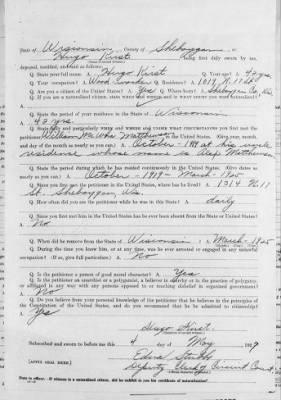 State of Wisconsin County of Sheboygan
Hugo Kirst being first duly sworn by me,
deposed, testified, and said as follows:
Q. State your full name. A. Hugo Kirst Q. Your age? A. 43 yrs.
Q. Your occupation? A. Wood Q. Residence? A. 1019 N. 17 St
Q. Are you a citizen of the United States? A. Yes Q. Where born? A. Sheboygan Co. Wis.
Q. If you are a naturalized citizen, state when and where and in what court you were naturalized.
Q. State the period of your residence in the State of Wisconsin
A. 43 yrs.
Q. State fully and particularly when and where and under what circumstances you first met the
petitioner William Matthewson (Giving year, month,
and day of the month as nearly as you can.) A. October - 1919 at his uncle
residense whose name is Alex Matthewson
Q. State the period during which he has resided continuously in the United States. (Give dates as
nearly as you can.) A. October - 1919 - March - 1925
Q. Since you first met the petitioner in the United States, where has he lived? A. 1314 N. 11
St. Sheboygan Wis.
Q. How often did you see the petitioner while he was in this State? A. daily
Q. Since you first met him in the United States has he ever been absent from the State or United States?
A. No
Q. When did he remove from the State of Wisconsin? A. March - 1925
Q. During the time you knew him, or at any time, was he ever arrested or engaged in any unlawful
occupation? (If so, give full particulars.) A. No
Q. Is the petitioner a person of good moral character? A. Yes
Q. Is the petitioner an anarchist or a polygamist, a believer in anarchy or in the practice of polygamy,
or affiliated in any way with any persons opposed to or teaching disbelief in organized government?
A. No
Q. Do you believe from your personal knowledge of the petitioner that he believes in the principles of
the Constitution of the United States, and do you recommend that he be admitted to citizenship?
A. Yes
Hugo Kirst
Subscribed and sworn to before me this 4 day of May 1929
Edna
[AFFIX SEAL HERE.] Deputy Clerk Circuit Court
Note.—If witness is a naturalized citizen, did he exhibit to you his certificate of naturalization?